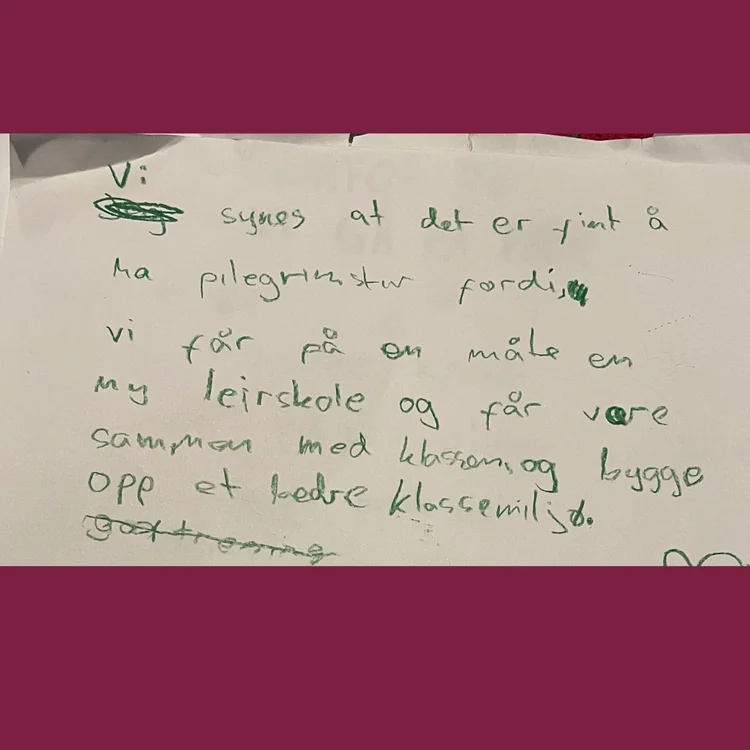 Vi
synes at det er fint å
ha pilegrimstur fordi
vi får på en måte en
ny leirskole og får være
sammen med klassen, og bygge
opp et bedre klassemiljø.